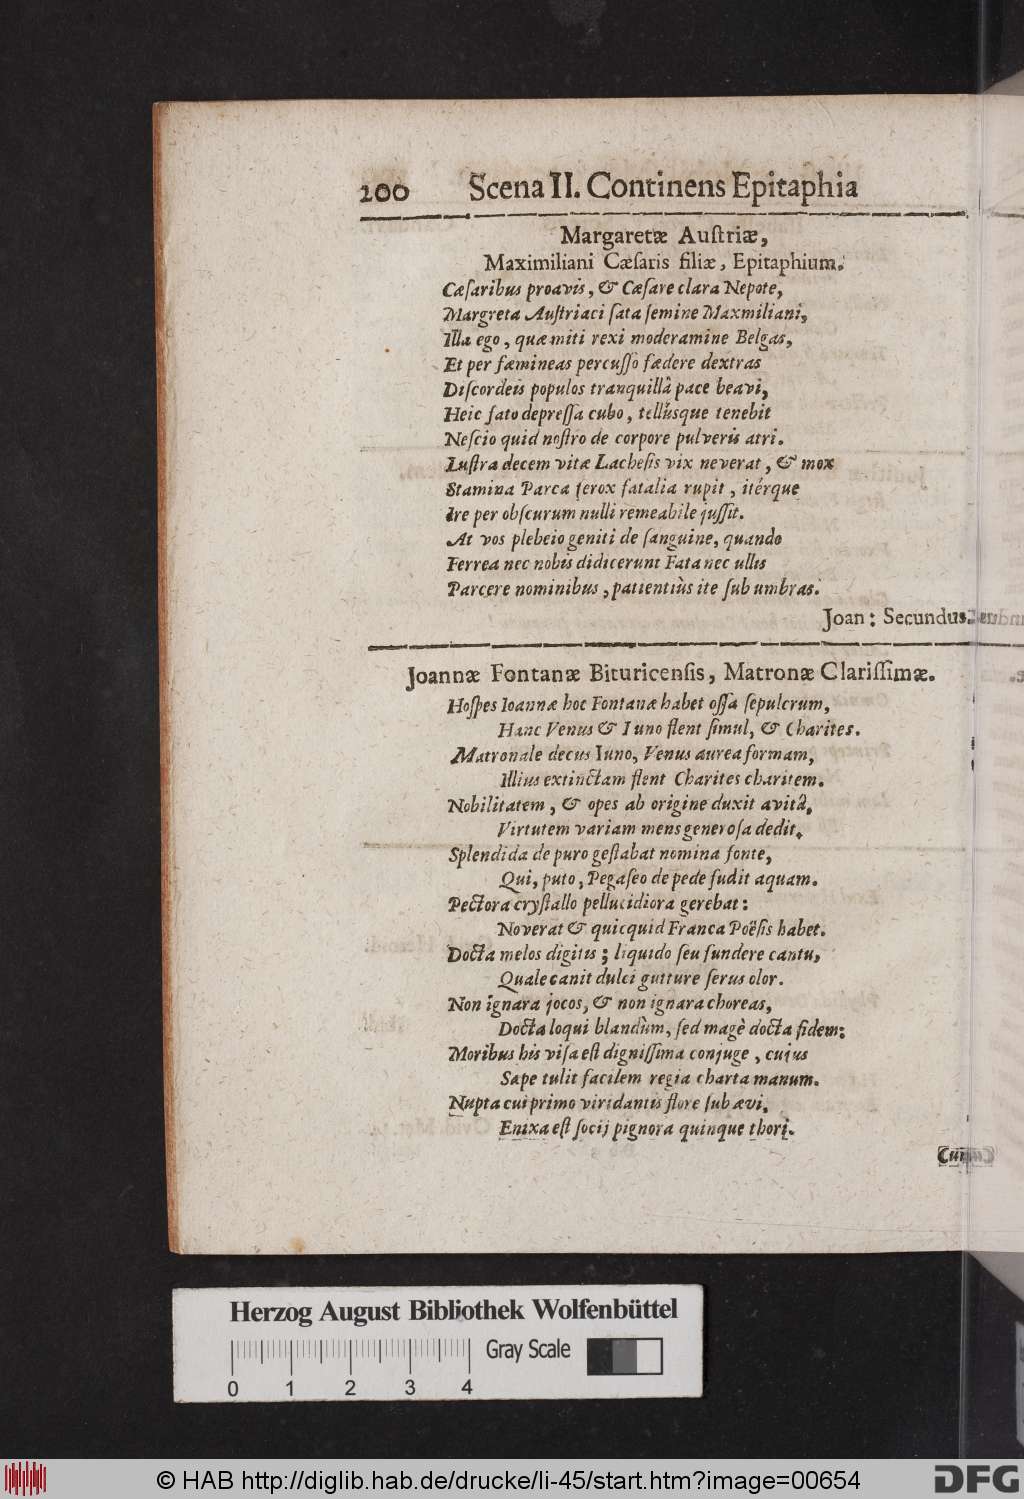 200 Scena II. Continens Epitaphia
Margaretæ Auſtriæ,
Maximiliani Cæſaris filiæ, Epitaphium.
Cæſaribus proavis, & Cæſare clara Nepote,
Margreta Auſtriaci ſata ſemine Maxmiliani,
Illa ego, quæ miti rexi moderamine Belgas,
Et per fæmineas percuſſo fœdere dextras
Diſcordeis populos tranquillâ pace beavi,
Heic fato depreſſa cubo, tellúsque tenebit
Neſcio quid noſtro de corpore pulveris atri.
Luſtra decem vitæ Lacheſis vix neverat, & mox
Stamina Parca ferox fatalia rupit, itérque
Ire per obſcurum nulli remeabile juſſit.
At vos plebeio geniti de ſanguine, quando
Ferrea nec nobis didicerunt Fata nec ullis
Parcere nominibus, patientiùs ite ſub umbras.
Joan: Secundus.
Joannæ Fontanæ Bituricenſis, Matronæ Clariſſimæ.
Hoſpes Ioannæ hoc Fontanæ habet oſſa ſepulcrum,
Hanc Venus & Iuno flent ſimul, & Charites.
Matronale decus Iuno, Venus aurea formam,
Illius extinctam flent Charites charitem.
Nobilitatem, & opes ab origine duxit avitâ,
Virtutem variam mens generoſa dedit.
Splendida de puro geſtabat nomina fonte,
Qui, puto, Pegaſeo de pede fudit aquam.
Pectora cryſtallo pellucidiora gerebat:
Noverat & quicquid Franca Poëſis habet.
Docta melos digitis; liquido ſeu fundere cantu,
Quale canit dulci gutture ſerus olor.
Non ignara jocos, & non ignara choreas,
Docta loqui blandùm, ſed magè docta fidem:
Moribus his viſa eſt digniſſima conjuge, cujus
Sæpe tulit facilem regia charta manum.
Nupta cui primo viridantis flore ſub ævi,
Enixa eſt ſocij pignora quinque thori.
Herzog August Bibliothek Wolfenbüttel
Gray Scale
0 1 2 3 4
© HAB http://diglib.hab.de/drucke/li-45/start.htm?image=00654
DFG